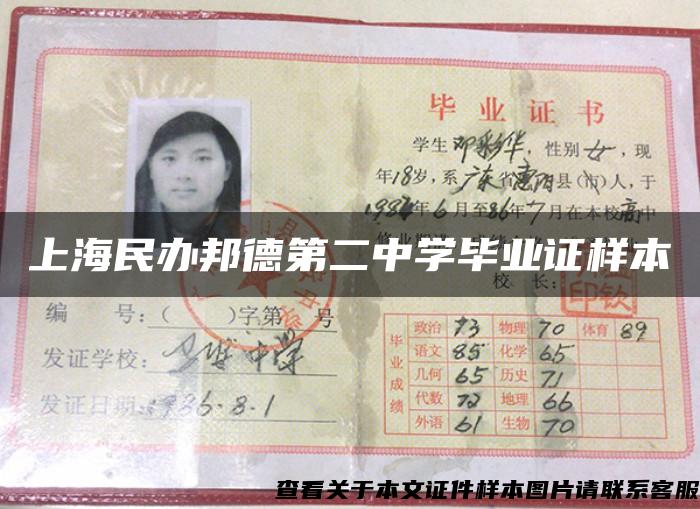 毕业证书
学生邓彩华，性别女，现
年18岁，系广东省惠阳县(市)人，于
1984年6月至86年7月在本校高中
上海民办邦德第二中学毕业证样本
校 长：
编 号：( )字第 号
发证学校： 中学
发证日期：1986.8.1
毕业成绩
政治 73 物理 70 体育 89
语文 85 化学 65
几何 65 历史 71
代数 72 地理 66
外语 61 生物 70
查看关于本文证件样本图片请联系客服